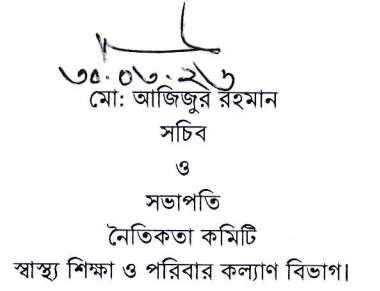 মো: আজিজুর রহমান
সচিব
ও
সভাপতি
নৈতিকতা কমিটি
স্বাস্থ্য শিক্ষা ও পরিবার কল্যাণ বিভাগ।